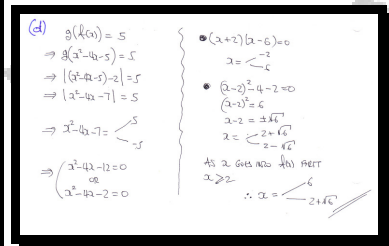 (d) g(f(x)) = 5
⇒ g(x²-4x-5) = 5
⇒ |(x²-4x-5)-2| = 5
⇒ |x²-4x-7| = 5
⇒ x²-4x-7 = 5
-5
⇒ x²-4x-12=0
OR
x²-4x-2=0
• (x+2)(x-6)=0
x= -2
6
• (x-2)²-4-2=0
(x-2)²=6
x-2 = ±√6
x= 2+√6
2-√6
AS x GOES INTO f(x) FIRST
x⩾2
∴ x = 6
2+√6